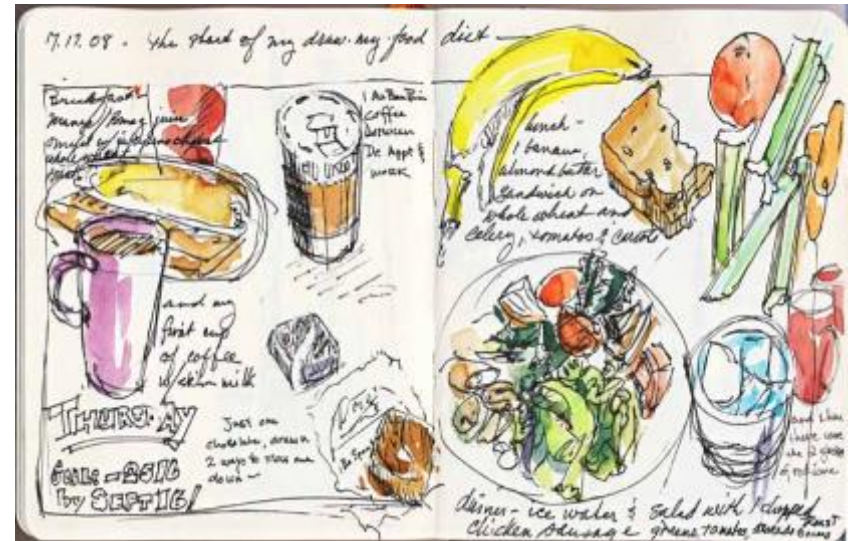 7.17.08 - the start of my draw-my-food diet -
Breakfast -
Mango / juice
omelet w/ cheese
whole wheat
toast
1 Au Bon Pain
coffee
between
Dr. Appt &
work
and my
first cup
of coffee
w/ skim milk
THURSDAY
GOAL - 25 lb
by SEPT 16!
Just one
chocolate, drawn
2 ways to slow me
down -
lunch -
1 banana
almond butter
sandwich on
whole wheat and
celery, tomatos & carrots
and then
there were
the 2 glasses
of red wine
dinner - ice water & salad with 1 chopped
chicken sausage greens, tomatos,